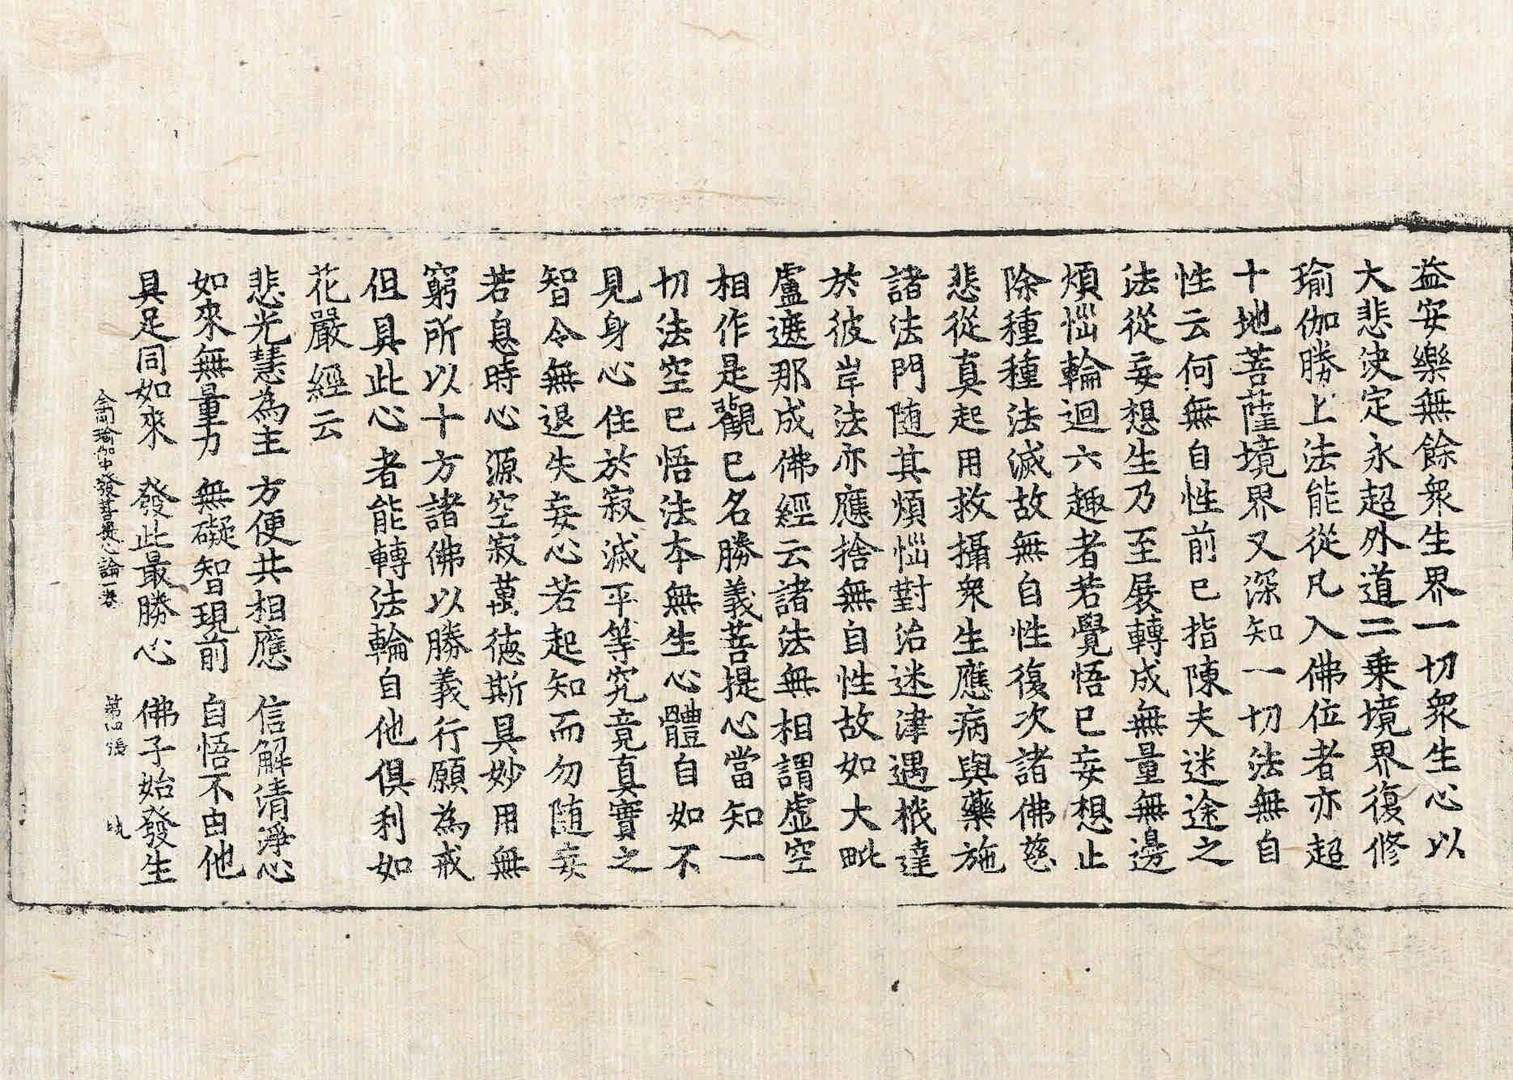 益安樂無餘衆生界一切衆生心以
大悲決定永超外道二乗境界復修
瑜伽勝上法能從凡入佛位者亦超
十地菩薩境界又深知一切法無自
性云何無自性前已指陳夫迷途之
法從妄想生乃至展轉成無量無邊
煩惱輪迴六趣者若覺悟已妄想止
除種種法滅故無自性復次諸佛慈
悲從真起用救攝衆生應病與藥施
諸法門随其煩惱對治迷津遇栰達
於彼岸法亦應捨無自性故如大毗
盧遮那成佛經云諸法無相謂虚空
相作是觀已名勝義菩提心當知一
切法空已悟法本無生心體自如不
見身心住於寂滅平等究竟真實之
智令無退失妄心若起知而勿随妄
若息時心源空寂萬徳斯具妙用無
窮所以十方諸佛以勝義行願為戒
但具此心者能轉法輪自他俱利如
花嚴經云
悲光慧為主 方便共相應 信解清淨心
如來無量力 無礙智現前 自悟不由他
具足同如來 發此最勝心 佛子始發生
金剛瑜伽中發菩提心論一卷 第四張